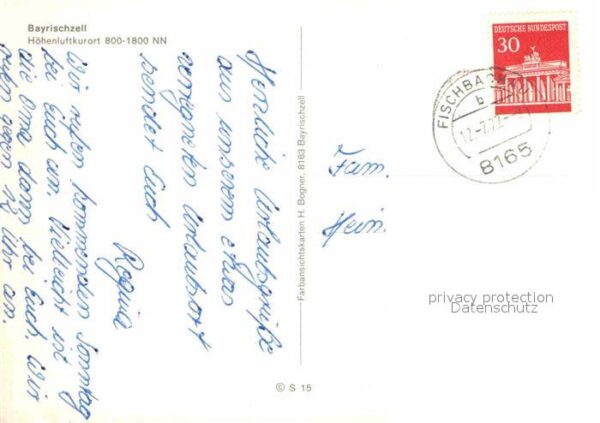 Bayrischzell
Höhenluftkurort 800-1800 NN
Herzliche Urlaubsgrüße
aus unserem etwas
verregneten Urlaubsort
sendet Euch
Regina
Wir rufen kommenden Sonntag
bei Euch an. Vielleicht ist
die Oma dann bei Euch. Wir
rufen gegen 12 Uhr an.
Farbansichtskarten H. Bogner, 8163 Bayrischzell
© S 15
DEUTSCHE BUNDESPOST
30
FISCHBACHAU
b
8165
Fam.
Hein.
privacy protection
Datenschutz